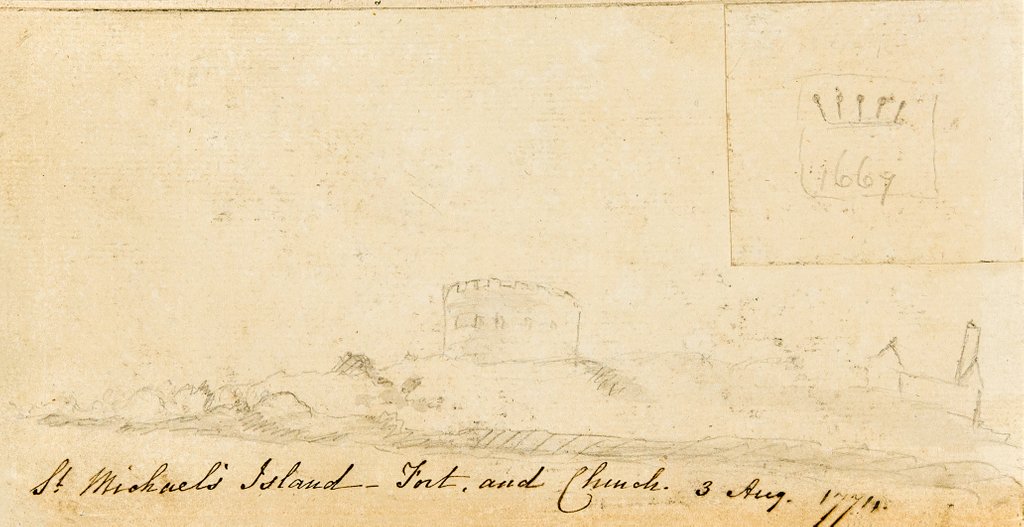 St. Michael's Island - Fort, and Church. 3 Aug. 1774.